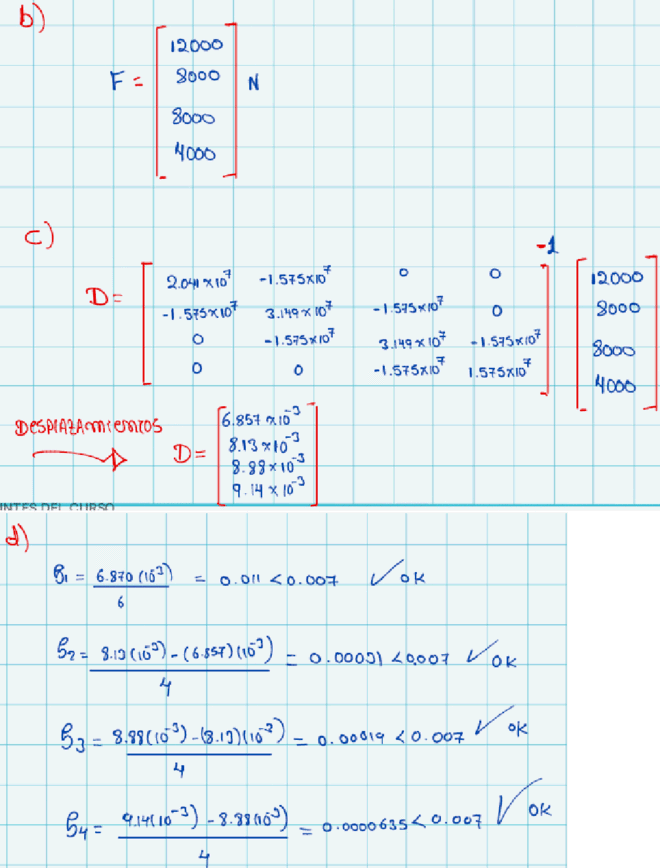 b)
F = [ 12000
8000
8000
4000 ] N
c)
D = [ 2.041 x 10^7 -1.575x10^7 0 0
-1.575x10^7 3.149x10^7 -1.575x10^7 0
0 -1.575x10^7 3.149x10^7 -1.575x10^7
0 0 -1.575x10^7 1.575x10^7 ]^-1 [ 12000
8000
8000
4000 ]
DESPLAZAMIENTOS
D = [ 6.857 x10^-3
8.13 x10^-3
8.88 x10^-3
9.14 x 10^-3 ]
NTES DEL CURSO
d)
β1 = 6.870 (10^-3) / 6 = 0.011 < 0.007 ✓ OK
β2 = 8.13(10^-3) - (6.857)(10^-3) / 4 = 0.00031 < 0.007 ✓ OK
β3 = 8.88(10^-3) - (8.13)(10^-3) / 4 = 0.00019 < 0.007 ✓ OK
β4 = 9.14(10^-3) - 8.88(10^-3) / 4 = 0.0000635 < 0.007 ✓ OK